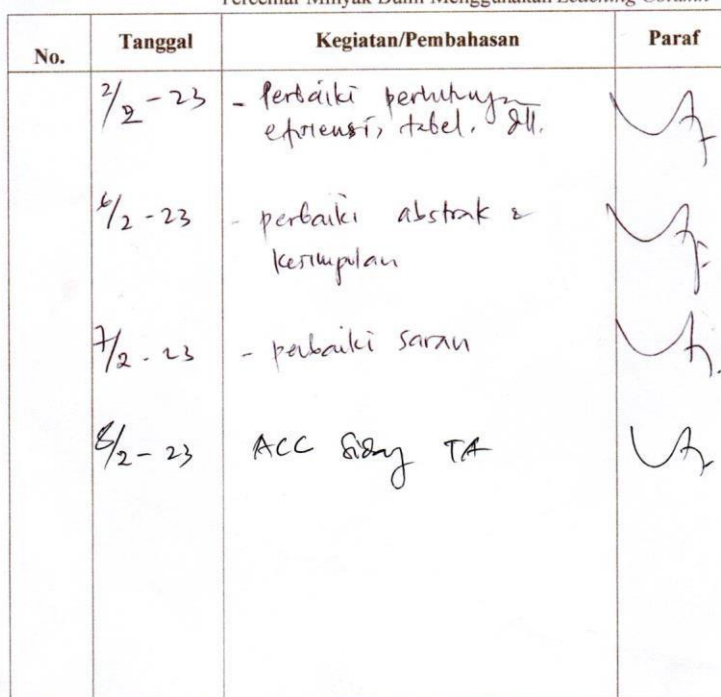 Tercemar Minyak Bumi Menggunakan Leaching Column
No. Tanggal Kegiatan/Pembahasan Paraf
2/2 - 23 - Perbaiki perhitungan
efisiensi, tabel, dll.
6/2 - 23 - perbaiki abstrak &
kesimpulan
7/2 - 23 - perbaiki saran
8/2 - 23 ACC Sidang TA